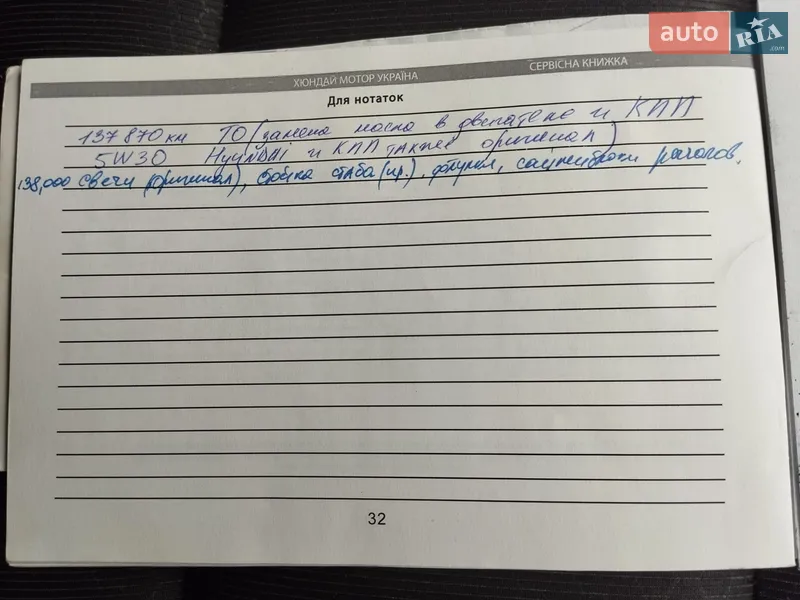 auto RIA .com
ХЮНДАЙ МОТОР УКРАЇНА
СЕРВІСНА КНИЖКА
Для нотаток
137870 км ТО (замена масла в двигателе и КПП
5W30 Hyundai и КПП также оригинал)
138,000 свечи (оригинал), стаба (пр.), втулки, сайлентблоки рычагов.
32